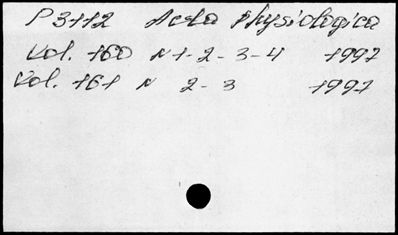 P 3112 Acta Physiologica
Vol. 160 N 1-2-3-4 1997
Vol. 161 N 2-3 1997